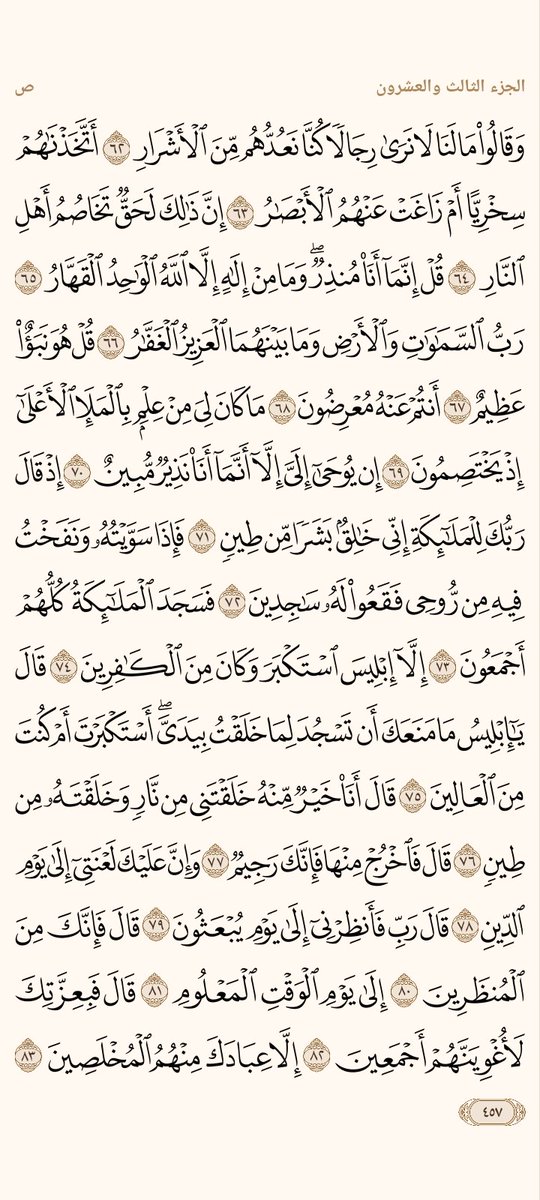 الجزء الثالث والعشرون ص
وَقَالُوا۟ مَا لَنَا لَا نَرَىٰ رِجَالًا كُنَّا نَعُدُّهُم مِّنَ ٱلْأَشْرَارِ ٦٢ أَتَّخَذْنَٰهُمْ
سِخْرِيًّا أَمْ زَاغَتْ عَنْهُمُ ٱلْأَبْصَٰرُ ٦٣ إِنَّ ذَٰلِكَ لَحَقٌّ تَخَاصُمُ أَهْلِ
ٱلنَّارِ ٦٤ قُلْ إِنَّمَآ أَنَا۠ مُنذِرٌ ۖ وَمَا مِنْ إِلَٰهٍ إِلَّا ٱللَّهُ ٱلْوَٰحِدُ ٱلْقَهَّارُ ٦٥
رَبُّ ٱلسَّمَٰوَٰتِ وَٱلْأَرْضِ وَمَا بَيْنَهُمَا ٱلْعَزِيزُ ٱلْغَفَّٰرُ ٦٦ قُلْ هُوَ نَبَؤٌا۟
عَظِيمٌ ٦٧ أَنتُمْ عَنْهُ مُعْرِضُونَ ٦٨ مَا كَانَ لِىَ مِنْ عِلْمٍۭ بِٱلْمَلَإِ ٱلْأَعْلَىٰٓ
إِذْ يَخْتَصِمُونَ ٦٩ إِن يُوحَىٰٓ إِلَىَّ إِلَّآ أَنَّمَآ أَنَا۠ نَذِيرٌ مُّبِينٌ ٧٠ إِذْ قَالَ
رَبُّكَ لِلْمَلَٰٓئِكَةِ إِنِّى خَٰلِقٌۢ بَشَرًا مِّن طِينٍ ٧١ فَإِذَا سَوَّيْتُهُۥ وَنَفَخْتُ
فِيهِ مِن رُّوحِى فَقَعُوا۟ لَهُۥ سَٰجِدِينَ ٧٢ فَسَجَدَ ٱلْمَلَٰٓئِكَةُ كُلُّهُمْ
أَجْمَعُونَ ٧٣ إِلَّآ إِبْلِيسَ ٱسْتَكْبَرَ وَكَانَ مِنَ ٱلْكَٰفِرِينَ ٧٤ قَالَ
يَٰٓإِبْلِيسُ مَا مَنَعَكَ أَن تَسْجُدَ لِمَا خَلَقْتُ بِيَدَىَّ ۖ أَسْتَكْبَرْتَ أَمْ كُنتَ
مِنَ ٱلْعَالِينَ ٧٥ قَالَ أَنَا۠ خَيْرٌ مِّنْهُ خَلَقْتَنِى مِن نَّارٍ وَخَلَقْتَهُۥ مِن
طِينٍ ٧٦ قَالَ فَٱخْرُجْ مِنْهَا فَإِنَّكَ رَجِيمٌ ٧٧ وَإِنَّ عَلَيْكَ لَعْنَتِىٓ إِلَىٰ يَوْمِ
ٱلدِّينِ ٧٨ قَالَ رَبِّ فَأَنظِرْنِىٓ إِلَىٰ يَوْمِ يُبْعَثُونَ ٧٩ قَالَ فَإِنَّكَ مِنَ
ٱلْمُنظَرِينَ ٨٠ إِلَىٰ يَوْمِ ٱلْوَقْتِ ٱلْمَعْلُومِ ٨١ قَالَ فَبِعِزَّتِكَ
لَأُغْوِيَنَّهُمْ أَجْمَعِينَ ٨٢ إِلَّا عِبَادَكَ مِنْهُمُ ٱلْمُخْلَصِينَ ٨٣
٤٥٧